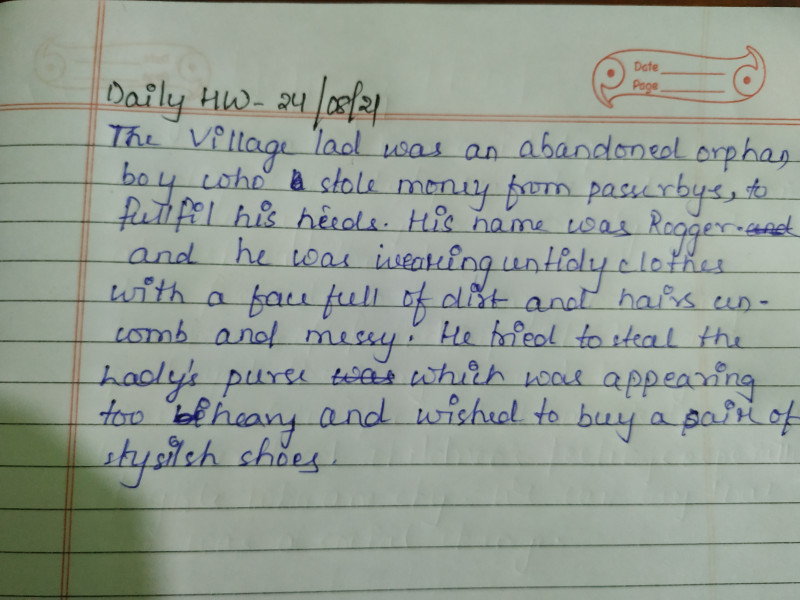 Date
Page
Daily HW- 24/08/21
The Village lad was an abandoned orphan,
boy who stole money from passurbys, to
fullfil his needs. His name was Rogger. and
and he was wearing untidy clothes
with a face full of dirt and hairs un-
comb and messy. He tried to steal the
Lady's purse was which was appearing
too heavy and wished to buy a pair of
stysilsh shoes.